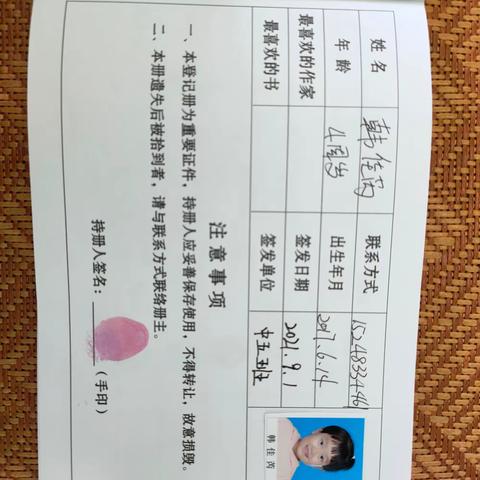 姓名 韩佳芮 联系方式
年龄 4周岁 出生年月 2017.6.14
最喜欢的作家 签发日期 2021.9.1
最喜欢的书 签发单位 中五班
韩佳芮
注意事项
一、本登记册为重要证件，持册人应妥善保存使用，不得转让，故意损毁。
二、本册遗失后被拾到者，请与联系方式联络册主。
持册人签名：（手印）